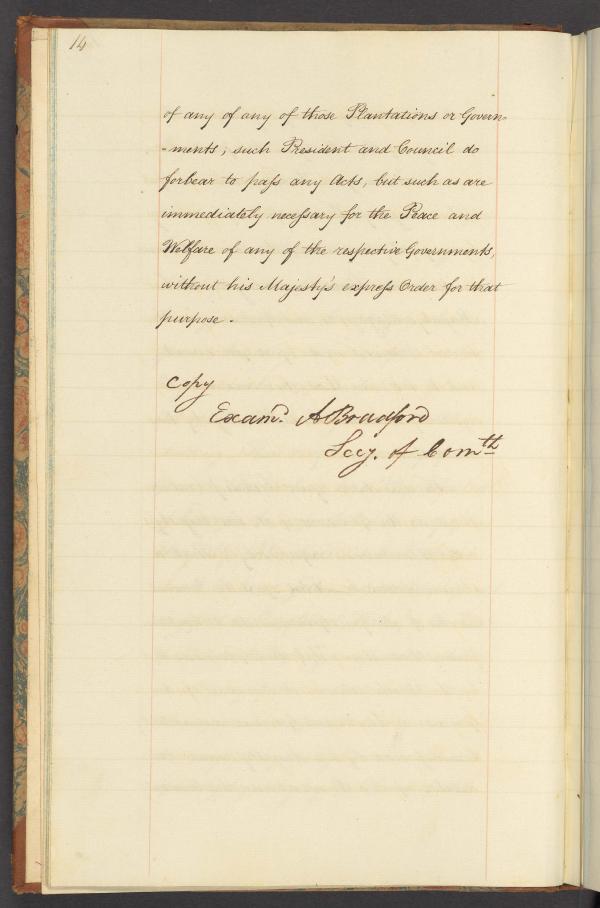 14
of any of any of those Plantations or Govern-
-ments, such President and Council do
forbear to pass any Acts, but such as are
immediately necessary for the Peace and
Welfare of any of the respective Governments,
without his Majesty's express Order for that
purpose.
Copy
Examd. A Bradford
Secy. of Comth